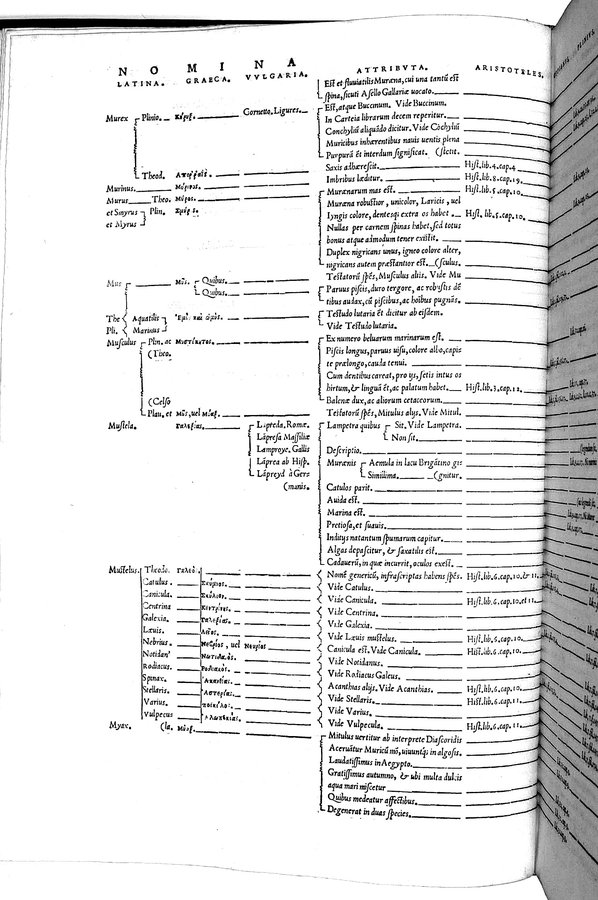 NOMINA
LATINA. GRAECA. VVLGARIA. ATTRIBVTA. ARISTOTELES.
Est et fluuiatilis Muræna, cui una tantũ est
spina, sicuti Asello Gallariæ uocato.
Murex Plinio. Cornetto, Ligures. Est, atque Buccinum. Vide Buccinum.
In Carteia librarum decem reperitur.
Conchyliũ aliquãdo dicitur. Vide Cõchyliũ
Muricibus inhærentibus nauis uentis plena
Purpurã et interdum significat. (stetit.
Saxis adhærescit. Hist. lib. 4. cap. 4
Theod. Imbribus læditur. Hist. lib. 8. cap. 19.
Murinus. Murænarum mas est. Hist. lib. 5. cap. 10.
Murus Theo. Muræna robustior, unicolor, Laricis, uel
et Smyrus Plin. Iyngis colore, dentesq; extra os habet. Hist. lib. 5. cap. 10.
et Myrus Nullas per carnem spinas habet, sed totus
bonus atque admodum tener existit.
Duplex nigricans unus, igneo colore alter,
nigricans autem præstantior est. (sculus.
Mus Μῦς. Quibus. Testatorũ spẽs, Musculus aliis. Vide Mu
Quibus. Paruus piscis, duro tergore, ac robustis dẽ
tibus audax, cũ piscibus, ac hoĩbus pugnãs.
The Aquatilis Testudo lutaria et dicitur ab eisdem.
Pli. Marinus Vide Testudo lutaria.
Musculus Plin. ac Ex numero beluarum marinarum est.
(Theo. Piscis longus, paruus uisu, colore albo, capis
te prælongo, cauda tenui.
Cum dentibus careat, pro ijs, setis intus os
hirtum, & linguã et, ac palatum habet. Hist. lib. 3. cap. 12.
(Celso Balenæ dux, ac aliorum cetaceorum.
Plau. et Testatorũ spẽs, Mitulus alys. Vide Mitul.
Mustela. Γαλεξίας. Lãpreda, Romæ. Lampetra quibus Sit. Vide Lampetra.
Lãpresa Massiliæ Non sit.
Lamproye. Gallis Descriptio.
Lãprea ab Hisp. Murænis Aemula in lacu Brigãtino gis
Lãpreyd à Gers Simillima. (gnitur.
(manis. Catulos parit.
Auida est.
Marina est.
Pretiosa, et suauis.
Inditys natantum spumarum capitur.
Algas depascitur, & saxatilis est.
Cadauerũ, in quæ incurrit, oculos exest.
Mustelus. Theodo. Γαλεὸς Nomẽ genericũ, infrascriptas habens spẽs. Hist. lib. 6. cap. 10. & 11.
Catulus. Σκύμνος. Vide Catulus.
Canicula. Σκύλιον. Vide Canicula. Hist. lib. 6. cap. 10. et 11.
Centrina Κεντρίνης. Vide Centrina.
Galexia. Γαλεξίας. Vide Galexia.
Læuis. Λεῖος. Vide Læuis mustelus. Hist. lib. 6. cap. 10.
Nebrius. Νεβρίος, uel Canicula est. Vide Canicula. Hist. lib. 6. cap. 10.
Notidan' Νωτιδανός. Vide Notidanus.
Rodiacus. Ροδιακός. Vide Rodiacus Galeus.
Spinax. Ἀκανθίας. Acanthias alys. Vide Acanthias. Hist. lib. 6. cap. 10.
Stellaris. Ἀστερίας. Vide Stellaris. Hist. lib. 6. cap. 11.
Varius. ποικίλος. Vide Varius.
Vulpecus Ἀλωπεκίας. Vide Vulpecula. Hist. lib. 6. cap. 11.
Myax. (la. Mitulus uertitur ab interprete Dioscoridis
Aceruãtur Muricũ mõ, uiuuntq; in algosis.
Laudatissimus in Aegypto.
Gratissimus autumno, & ubi multa dulcis
aqua mari miscetur
Quibus medeatur affectibus.
Degenerat in duas species.